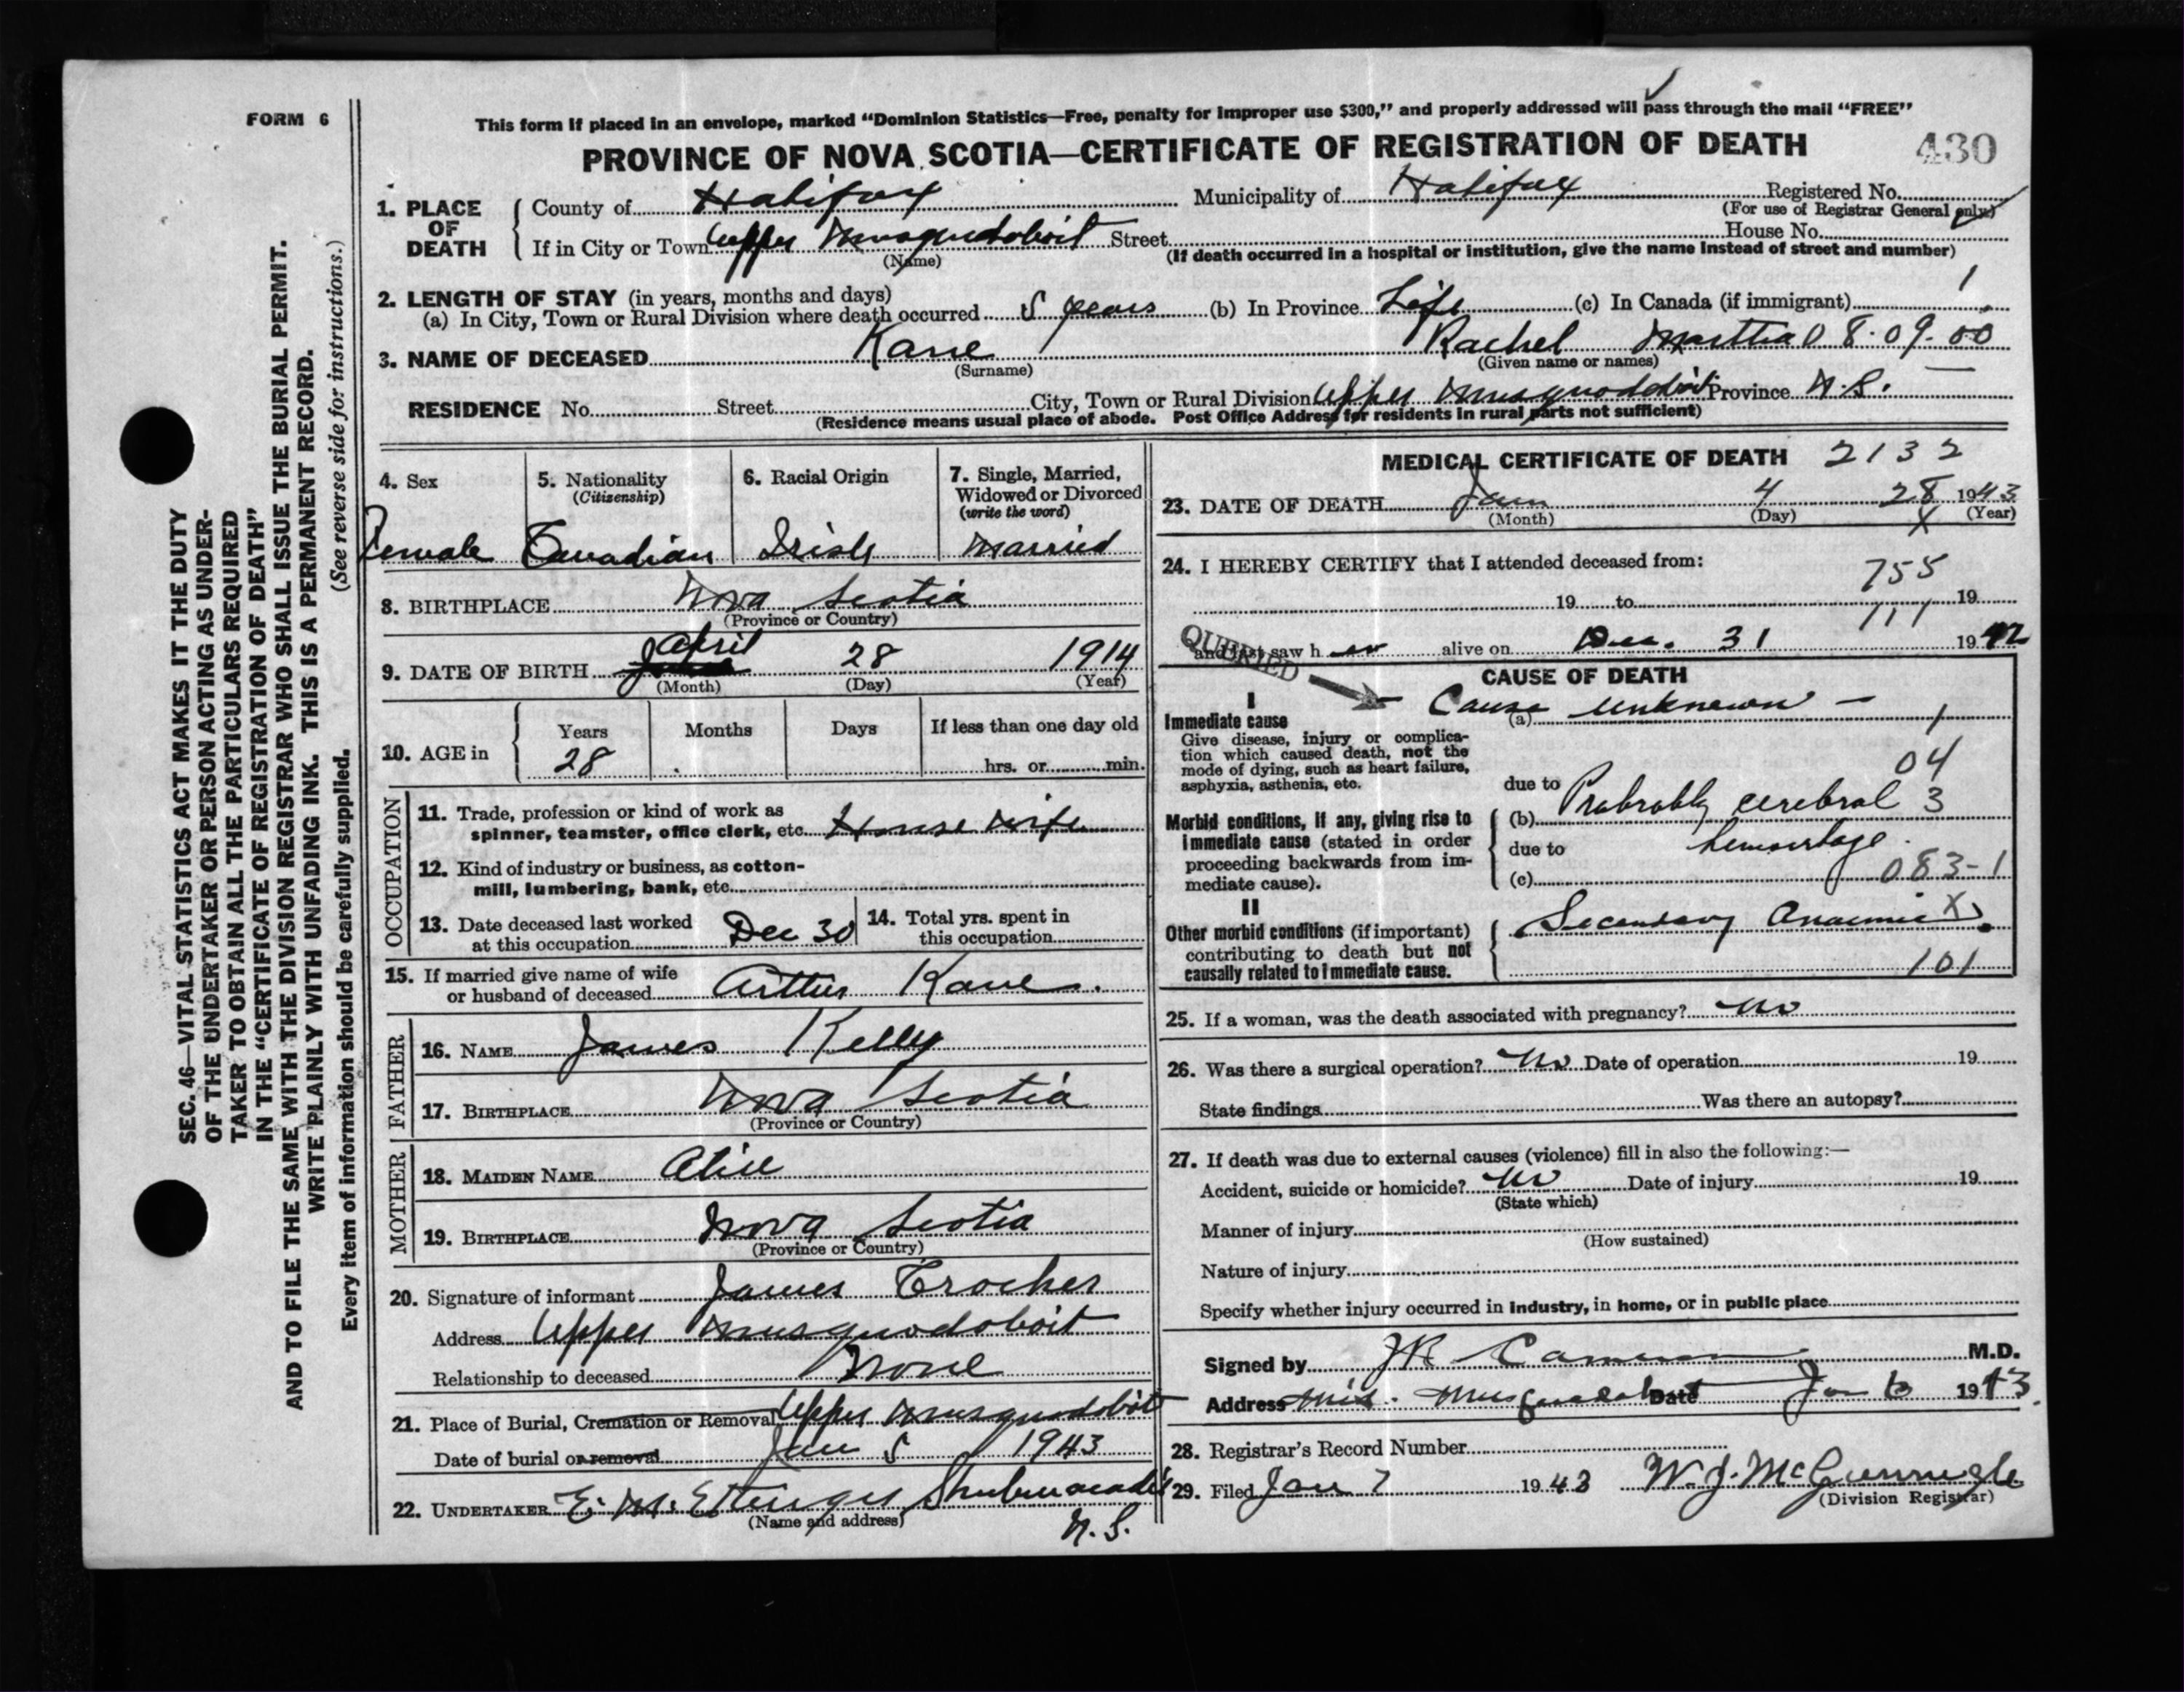 FORM 6
This form if placed in an envelope, marked “Dominion Statistics—Free, penalty for improper use $300,” and properly addressed will pass through the mail “FREE”
PROVINCE OF NOVA SCOTIA—CERTIFICATE OF REGISTRATION OF DEATH 430
1. PLACE OF DEATH County of Halifax Municipality of Halifax Registered No.
(For use of Registrar General only)
If in City or Town Upper Musquodoboit Street House No.
(Name) (If death occurred in a hospital or institution, give the name instead of street and number)
2. LENGTH OF STAY (in years, months and days)
(a) In City, Town or Rural Division where death occurred 5 years (b) In Province Life (c) In Canada (if immigrant) 1
3. NAME OF DECEASED Kane Rachel Martha 08.09.00
(Surname) (Given name or names)
RESIDENCE No. Street City, Town or Rural Division Upper Musquodoboit Province N.S.
(Residence means usual place of abode. Post Office Address for residents in rural parts not sufficient)
SEC. 46—VITAL STATISTICS ACT MAKES IT THE DUTY
OF THE UNDERTAKER OR PERSON ACTING AS UNDER-
TAKER TO OBTAIN ALL THE PARTICULARS REQUIRED
IN THE “CERTIFICATE OF REGISTRATION OF DEATH”
AND TO FILE THE SAME WITH THE DIVISION REGISTRAR WHO SHALL ISSUE THE BURIAL PERMIT.
WRITE PLAINLY WITH UNFADING INK. THIS IS A PERMANENT RECORD.
Every item of information should be carefully supplied. (See reverse side for instructions.)
4. Sex 5. Nationality 6. Racial Origin 7. Single, Married,
(Citizenship) Widowed or Divorced
(write the word)
Female Canadian Irish Married
8. BIRTHPLACE Nova Scotia
(Province or Country)
9. DATE OF BIRTH April 28 1914
(Month) (Day) (Year)
10. AGE in Years Months Days If less than one day old
28 hrs. or min.
OCCUPATION
11. Trade, profession or kind of work as
spinner, teamster, office clerk, etc. House wife
12. Kind of industry or business, as cotton-
mill, lumbering, bank, etc.
13. Date deceased last worked
at this occupation Dec 30
14. Total yrs. spent in
this occupation
15. If married give name of wife
or husband of deceased Arthur Kane.
FATHER
16. NAME James Kelly
17. BIRTHPLACE Nova Scotia
(Province or Country)
MOTHER
18. MAIDEN NAME Alice
19. BIRTHPLACE Nova Scotia
(Province or Country)
20. Signature of informant James Crocker
Address Upper Musquodoboit
Relationship to deceased None
21. Place of Burial, Cremation or Removal Upper Musquodoboit
Date of burial or removal Jan 5 1943
22. UNDERTAKER E. M. Ettinger Shubenacadie
(Name and address) N. S.
MEDICAL CERTIFICATE OF DEATH 2132
23. DATE OF DEATH Jan 4 28 1943
(Month) (Day) X (Year)
24. I HEREBY CERTIFY that I attended deceased from: 755
19 to 19
111
and last saw h er alive on Dec. 31 1942
QUERIED
CAUSE OF DEATH
I
Immediate cause
Cause unknown —
(a) 1
Give disease, injury or complica-
tion which caused death, not the
mode of dying, such as heart failure,
asphyxia, asthenia, etc.
04
due to
(b) Probrobly cerebral 3
Morbid conditions, if any, giving rise to
immediate cause (stated in order
proceeding backwards from im-
mediate cause).
due to hemorrhage.
(c) 083-1
II
Other morbid conditions (if important)
contributing to death but not
causally related to immediate cause.
Secondary Anaemia X
101
25. If a woman, was the death associated with pregnancy? No
26. Was there a surgical operation? No Date of operation 19
State findings Was there an autopsy?
27. If death was due to external causes (violence) fill in also the following:—
Accident, suicide or homicide? No Date of injury 19
(State which)
Manner of injury
(How sustained)
Nature of injury
Specify whether injury occurred in industry, in home, or in public place
Signed by J R Cameron M.D.
Address Mid. Musquodoboit Date Jan 6 1943.
28. Registrar’s Record Number
29. Filed Jan 7 1943 W. J. McGunnigle
(Division Registrar)